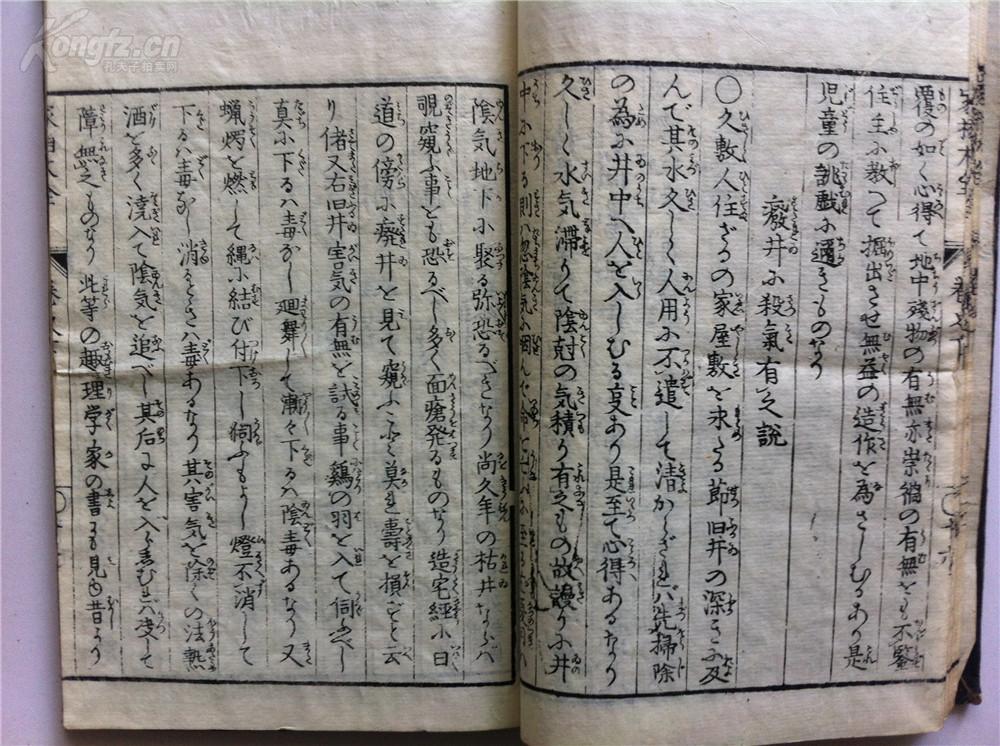 覆の如く心得て地中残物の有無亦崇禍の有無をも不鑒
住主に教へて掘出させ無益の造作を為さしむるあり是
児童の謔戯に邇きものなり
廢井に殺氣有之説
〇久敷人住ざるの家屋敷を求たる節旧井の深きに及
んで其水久しく人用に不遣して清からざれバ先掃除
の為に井中へ人を入しむる事あり是至て心得あるなり
久しく水気滞りて陰尅の気積り有之もの故謾りに井
中に下る則ハ忽陰気に
陰気地下に聚る弥恐るべきなり尚久年の枯井ならバ
覗窺ふ事とも恐るべし多く面瘡発るものなり造宅經に曰
道の傍に癈井を見て窺ふこと莫れ壽を損ごと云
り偖又右旧井害気の有無を試る事鷄の羽を入て伺べし
真に下るハ毒なし廻舞して漸々下るハ陰毒あるなり又
蝋燭を燃して縄に結び付下し伺ふもよし燈不消して
下るハ毒なし消るときハ毒あるなり其害気を除くの法熱
酒を多く澆入て陰気を追べし其后に人を入らしむれバ決して
障無之ものなり此等の趣理学家の書にも見ゆ昔より
Kongfz.cn
孔夫子拍卖网